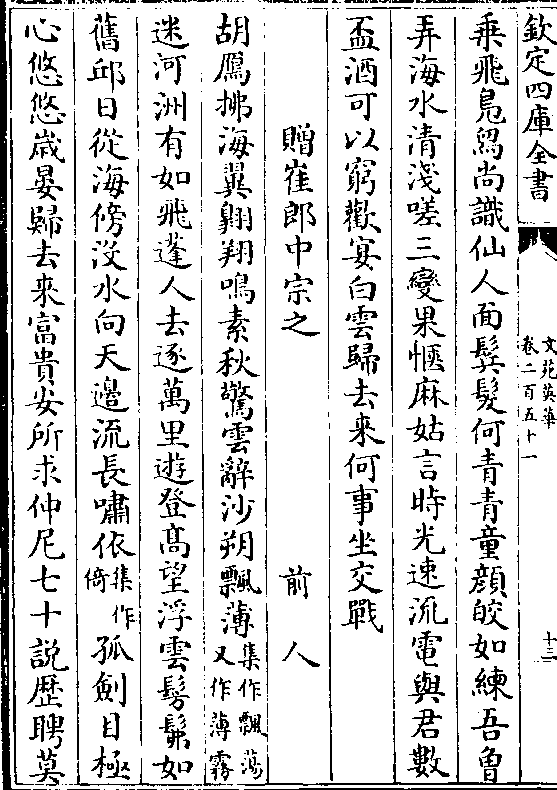 欽定四庫全書
文苑英華
卷二百五十一
十三
乗飛鳬舄尚識仙人面鬂髮何青青童顔皎如練吾曽
弄海水清淺嗟三變果愜麻姑言時光速流電與君數
盃酒可以窮歡宴白雲歸去來何事坐交戰
贈崔郎中宗之 前人
胡鴈拂海翼翺翔鳴素秋驚雲辭沙朔飄薄集作飄蕩又作薄霧
迷河洲有如飛蓬人去逐萬里遊登髙望浮雲髣髴如
舊邱日從海傍沒水向天邉流長嘯依集作倚孤劍目極
心悠悠嵗晏歸去來富貴安所求仲尼七十説歴聘莫